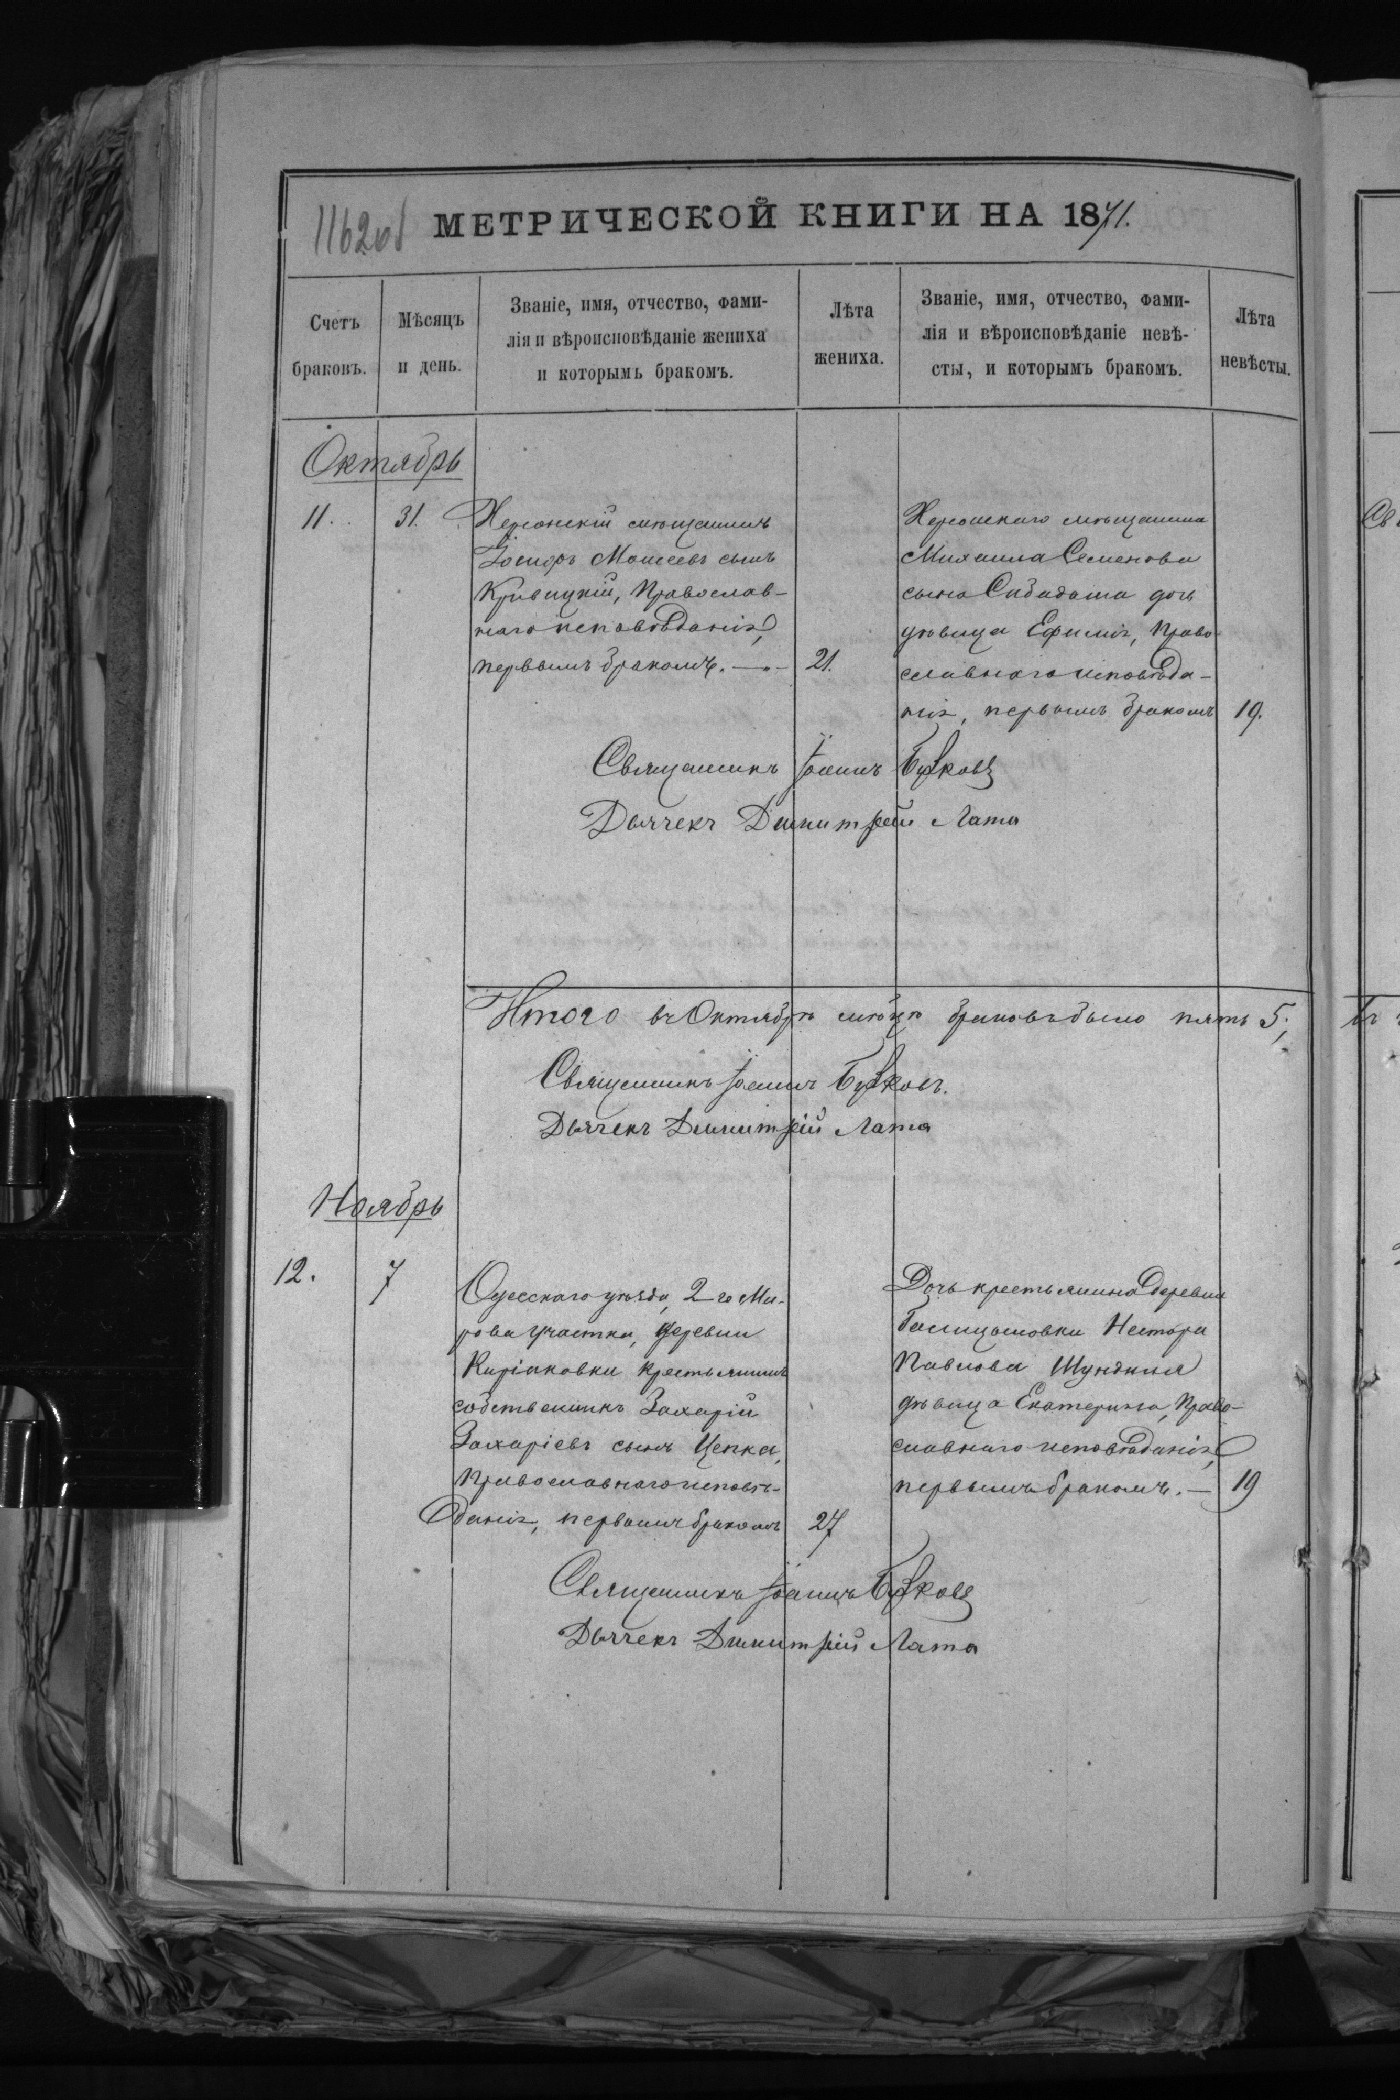 1162об МЕТРИЧЕСКОЙ КНИГИ НА 1871.
Счетъ браковъ.
Мѣсяцъ и день.
Званіе, имя, отчество, фами-
лія и вѣроисповѣданіе жениха
и которымъ бракомъ.
Лѣта жениха.
Званіе, имя, отчество, фами-
лія и вѣроисповѣданіе невѣ-
сты, и которымъ бракомъ.
Лѣта невѣсты.
Октябрь
11. 31.
Херсонскій мѣщанинъ
Іосифъ Моисеевъ сынъ
Кривицкій, Православ-
наго исповѣданія,
первымъ бракомъ. — 21.
Херсонскаго мѣщанина
Михаила Семенова
сына дочь
дѣвица Ефимія, Право-
славнаго исповѣда-
нія, первымъ бракомъ 19.
Священникъ Іоаннъ
Дьячекъ Димитрій Лата
Итого въ Октябрѣ мѣсяцѣ браковъ было пять 5,
Священникъ Іоаннъ
Дьячекъ Димитрій Лата
Ноябрь
12. 7
Одесскаго уѣзда, 2го Ми-
рова участка, деревни
Киріаковки крестьянинъ
собственникъ Захарій
Захаріевъ сынъ Цепка,
Православнаго исповѣ-
данія, первымъ бракомъ 27
Дочь крестьянина деревни
Нестора
Павлова
дѣвица Екатерина, Право-
славнаго исповѣданія,
первымъ бракомъ. — 19
Священникъ Іоаннъ
Дьячекъ Димитрій Лата